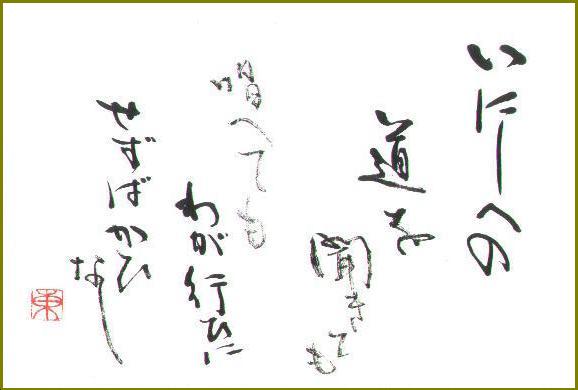 いにしへの
道を
聞きても
唱へても
わが行ひに
せずばかひ
なし
東